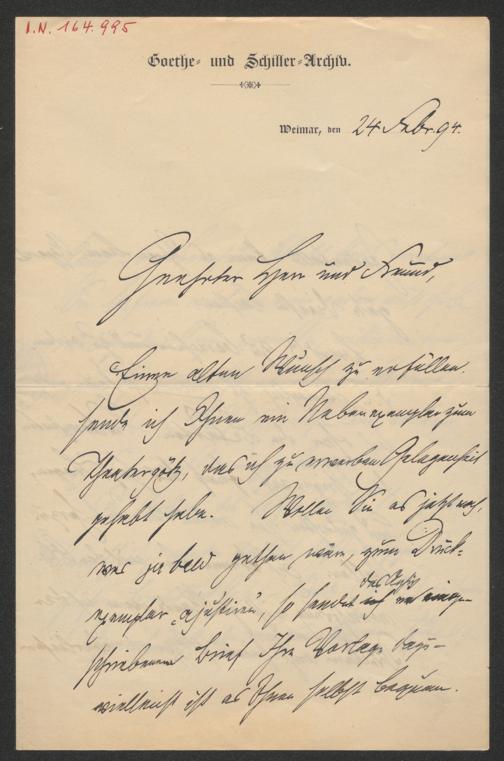 I.N. 164.995
Goethe- und Schiller-Archiv.
Weimar, den 24 Febr. 94.
Geehrter Herr und Freund,
Einen alten Wunsch zu erfüllen
sende ich Ihnen ein Nebenexemplar zum
Theatergötz, das ich zu erwerben Gelegenheit
gehabt habe. Wollen Sie es jetzt noch,
was ja bald gethan wäre, zum Druck-
exemplar „ajustiren“, so sendet
das Archiv
schriebenem Brief Ihre Vorlage dazu
vielleicht ist es Ihnen selbst bequem.